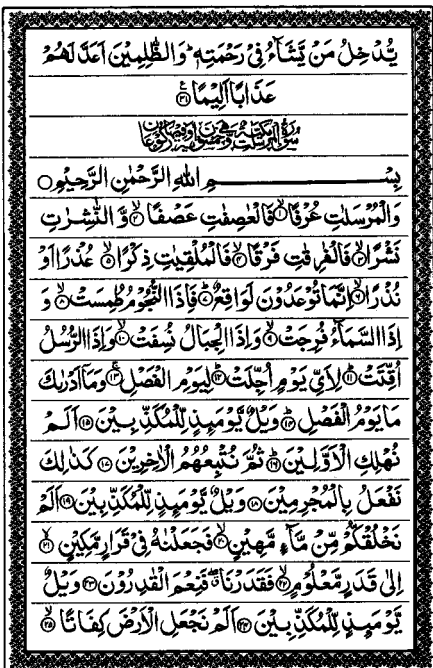 يُّدْخِلُ مَنْ يَّشَآءُ فِىْ رَحْمَتِهٖ ؕ وَالظّٰلِمِيْنَ اَعَدَّ لَهُمْ
عَذَابًا اَلِيْمًا ۝۳۱
بِسْمِ اللهِ الرَّحْمٰنِ الرَّحِيْمِ ۝
وَالْمُرْسَلٰتِ عُرْفًا ۝۱ فَالْعٰصِفٰتِ عَصْفًا ۝۲ وَّ النّٰشِرٰتِ
نَشْرًا ۝۳ فَالْفٰرِقٰتِ فَرْقًا ۝۴ فَالْمُلْقِيٰتِ ذِكْرًا ۝۵ عُذْرًا اَوْ
نُذْرًا ۝۶ اِنَّمَا تُوْعَدُوْنَ لَوَاقِعٌ ۝۷ فَاِذَا النُّجُوْمُ طُمِسَتْ ۝۸ وَ
اِذَا السَّمَآءُ فُرِجَتْ ۝۹ وَاِذَا الْجِبَالُ نُسِفَتْ ۝۱۰ وَاِذَا الرُّسُلُ
اُقِّتَتْ ۝۱۱ لِاَىِّ يَوْمٍ اُجِّلَتْ ۝۱۲ لِيَوْمِ الْفَصْلِ ۝۱۳ وَمَاۤ اَدْرٰىكَ
مَا يَوْمُ الْفَصْلِ ۝۱۴ وَيْلٌ يَّوْمَئِذٍ لِّلْمُكَذِّبِيْنَ ۝۱۵ اَلَمْ
نُهْلِكِ الْاَوَّلِيْنَ ۝۱۶ ثُمَّ نُتْبِعُهُمُ الْاٰخِرِيْنَ ۝۱۷ كَذٰلِكَ
نَفْعَلُ بِالْمُجْرِمِيْنَ ۝۱۸ وَيْلٌ يَّوْمَئِذٍ لِّلْمُكَذِّبِيْنَ ۝۱۹ اَلَمْ
نَخْلُقْكُّمْ مِّنْ مَّآءٍ مَّهِيْنٍ ۝۲۰ فَجَعَلْنٰهُ فِىْ قَرَارٍ مَّكِيْنٍ ۝۲۱
اِلٰى قَدَرٍ مَّعْلُوْمٍ ۝۲۲ فَقَدَرْنَا ۖ فَنِعْمَ الْقٰدِرُوْنَ ۝۲۳ وَيْلٌ
يَّوْمَئِذٍ لِّلْمُكَذِّبِيْنَ ۝۲۴ اَلَمْ نَجْعَلِ الْاَرْضَ كِفَاتًا ۝۲۵